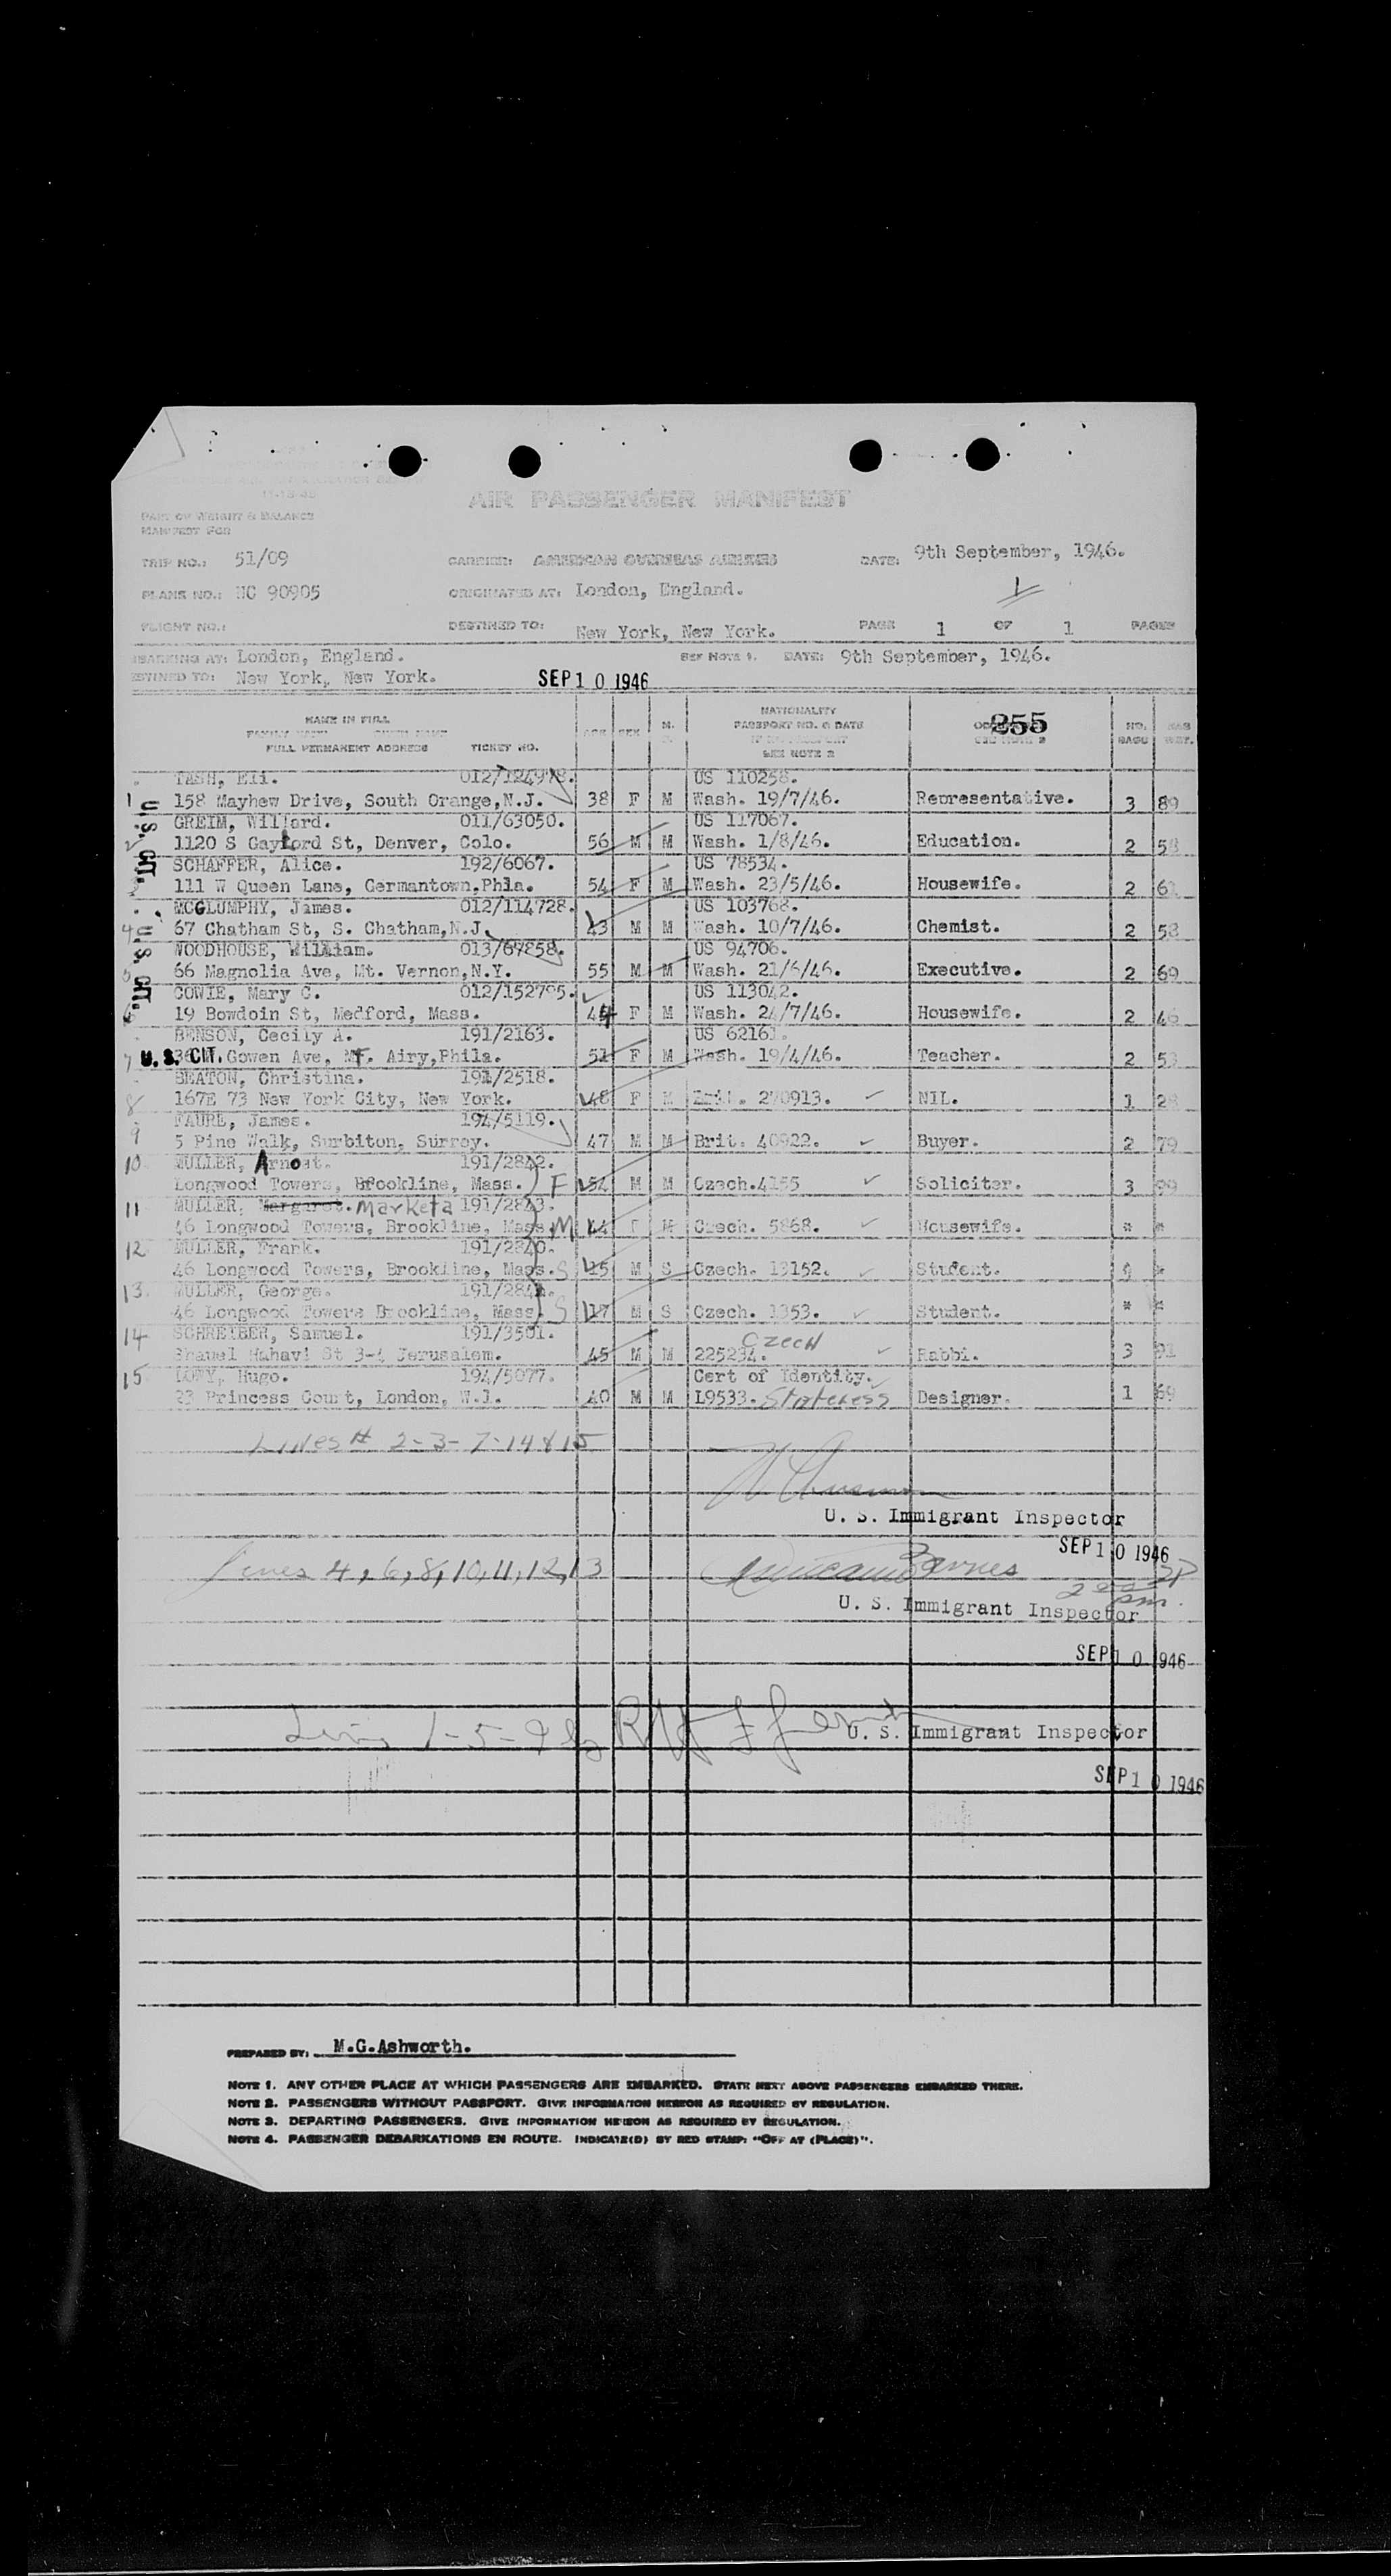 11-18-45
AIR PASSENGER MANIFEST
PART OF WEIGHT & BALANCE
MANIFEST FOR
TRIP NO.: 51/09 CARRIER: AMERICAN OVERSEAS AIRLINES DATE: 9th September, 1946.
PLANE NO.: NC 90905 ORIGINATED AT: London, England.
FLIGHT NO.: DESTINED TO: New York, New York. PAGE 1 OF 1 PAGES
BARKING AT: London, England. SEE NOTE 1. DATE: 9th September, 1946.
STINED TO: New York, New York. SEP 10 1946
NAME IN FULL
FAMILY NAME GIVEN NAME
FULL PERMANENT ADDRESS TICKET NO. AGE SEX M. NATIONALITY PASSPORT NO. & DATE SEE NOTE 2 255 NO. BAGS
TASH, Eli. US 110258.
1 158 Mayhew Drive, South Orange, N.J. 38 F M Wash. 19/7/46. Representative. 3 89
GREIM, Willard. 011/63050. US 117067.
1120 S Gaylord St, Denver, Colo. 56 M M Wash. 1/8/46. Education. 2 58
U.S. CIT.
SCHAFFER, Alice. 192/6067. US 78534.
111 W Queen Lane, Germantown,Phla. 54 F M Wash. 23/5/46. Housewife. 2
MCGLUMPHY, James. 012/114728. US 103768.
4 67 Chatham St, S. Chatham,N.J. 43 M M Wash. 10/7/46. Chemist. 2 58
WOODHOUSE, William. 013/69858. US 94706.
66 Magnolia Ave, Mt. Vernon,N.Y. 55 M M Wash. 21/6/46. Executive. 2 69
U.S. CIT.
COWIE, Mary C. 012/152795. US 113042.
19 Bowdoin St, Medford, Mass. 44 F M Wash. 24/7/46. Housewife. 2 46
BENSON, Cecily A. 191/2163.
7 U.S. CIT. Gowen Ave, Mt. Airy,Phila. 51 F M Wash. 19/4/46. Teacher. 2 53
BEATON, Christina. 191/2518.
8 167E 73 New York City, New York. 48 F M Brit. 270913. NIL. 1 28
FAURE, James. 194/5119.
9 5 Pine Walk, Surbiton, Surrey. 47 M M Brit. 40922. Buyer. 2 79
10 MULLER, Arnost. 191/2842.
Longwood Towers, Brookline, Mass. F 54 M M Czech.4155 Soliciter. 3 99
11 MULLER, Margaret. Marketa 191/2843.
46 Longwood Towers, Brookline, Mass. M 44 F M Czech. 5868. Housewife. * *
12 MULLER, Frank. 191/2840.
46 Longwood Towers, Brookline, Mass. S 15 M S Czech. 13152. Student. * *
13 MULLER, George.
46 Longwood Towers Brookline, Mass. S 17 M S Czech. 1353. Student. * *
14 SCHREIBER, Samuel. 191/3501. Czech
Hahavi St 3-4 Jerusalem. 45 M M 225234. Rabbi. 3 91
15 LOWY, Hugo. 194/5077. Cert of Identity.
23 Princess Court, London, W.1. 40 M M L9533. Stateless Designer. 1 69
Lines # 2-3-7-14 & 15
U. S. Immigrant Inspector
SEP 10 1946
Lines 4, 6, 8, 10, 11, 12, 13 Barnes
pm.
U. S. Immigrant Inspector
SEP 10 1946
Lines 1-5-9
U. S. Immigrant Inspector
SEP 10 1946
PREPARED BY: M.G.Ashworth.
NOTE 1. ANY OTHER PLACE AT WHICH PASSENGERS ARE EMBARKED. STATE NEXT ABOVE PASSENGERS EMBARKED THERE.
NOTE 2. PASSENGERS WITHOUT PASSPORT. GIVE INFORMATION HEREON AS REQUIRED BY REGULATION.
NOTE 3. DEPARTING PASSENGERS. GIVE INFORMATION HEREON AS REQUIRED BY REGULATION.
NOTE 4. PASSENGER DEBARKATIONS EN ROUTE. INDICATE(D) BY RED STAMP: "OFF AT (PLACE)".